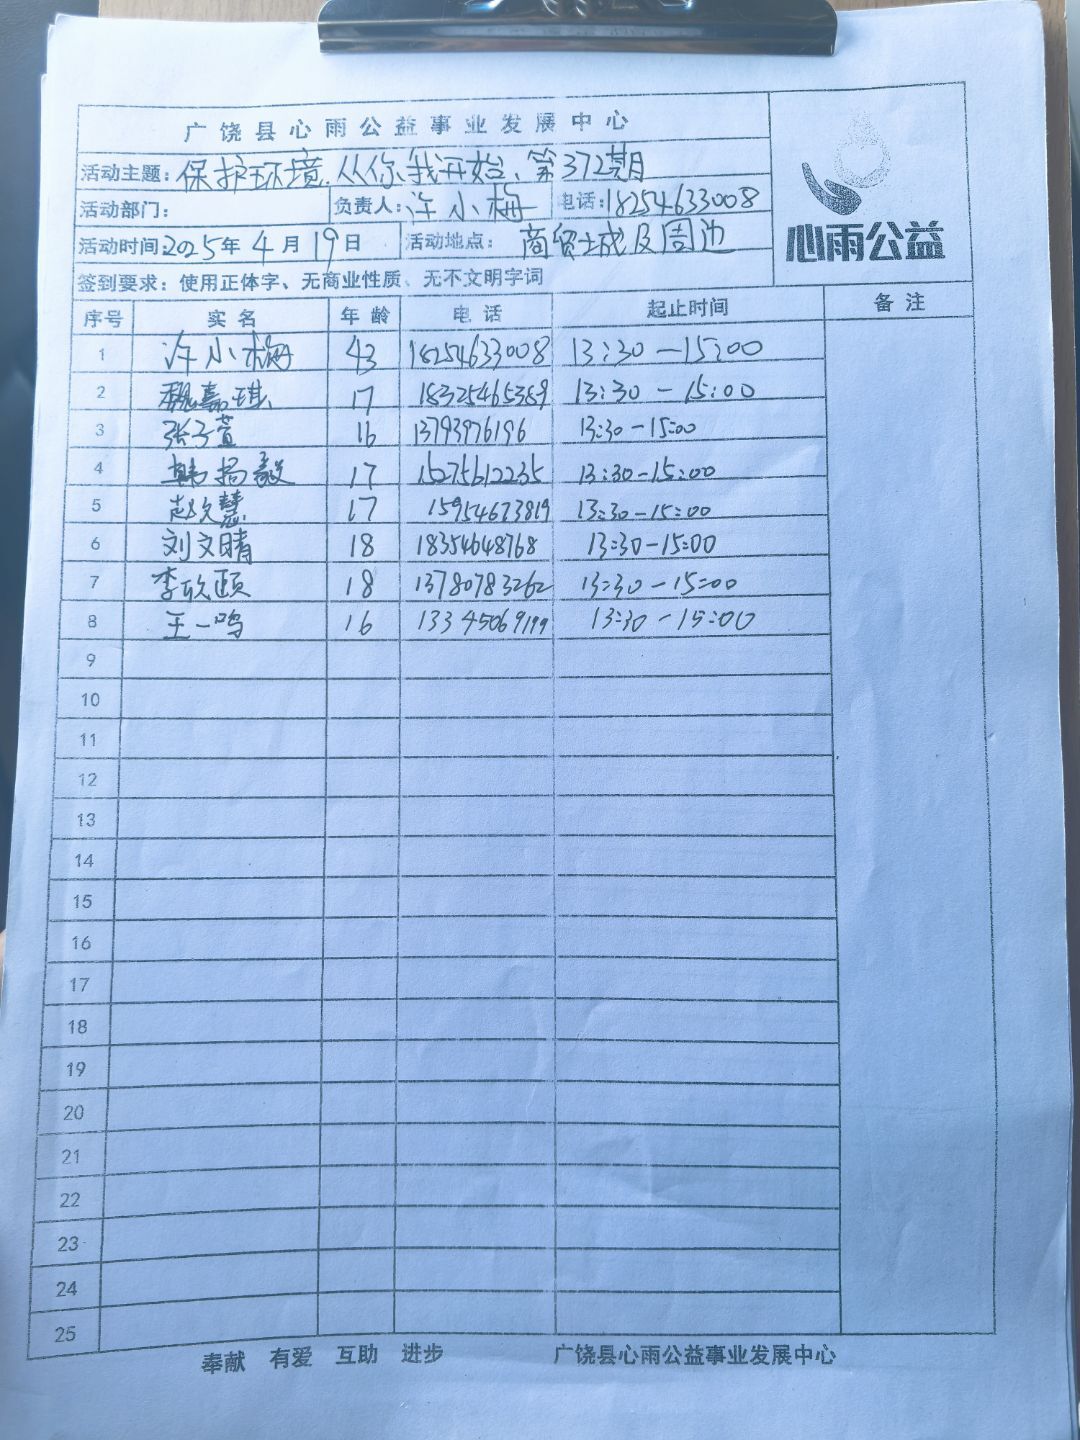 广饶县心雨公益事业发展中心
心雨公益
活动主题：保护环境.从你、我开始、第372期
活动部门： 负责人：许小梅 电话：18254633008
活动时间：2025年4月19日 活动地点：商贸城及周边
签到要求：使用正体字、无商业性质、无不文明字词
序号 实名 年龄 电话 起止时间 备注
1 许小梅 43 18254633008 13:30—15:00
2 魏嘉琪 17 18325465369 13:30—15:00
3 张子萱 16 13793976196 13:30-15:00
4 韩 毅 17 15275612235 13:30-15:00
5 赵文慧 17 15954673819 13:30-15:00
6 刘文晴 18 18354648768 13:30-15:00
7 李欣颐 18 13780783262 13:30-15:00
8 王一鸣 16 13345069199 13:30-15:00
9
10
11
12
13
14
15
16
17
18
19
20
21
22
23
24
25
奉献 有爱 互助 进步 广饶县心雨公益事业发展中心